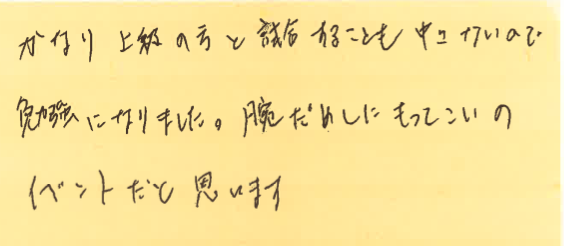 かなり上級の方と試合することも中々ないので
勉強になりました。腕だめしにもってこいの
イベントだと思います